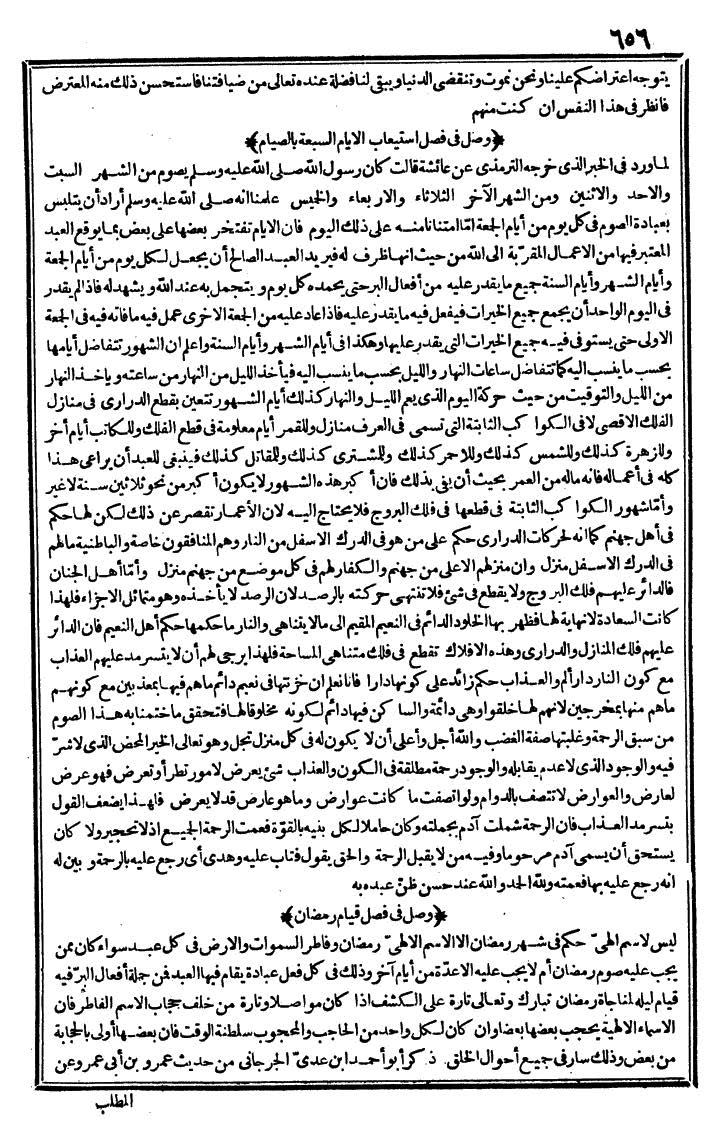 ٦٥٦
يتوجه اعتراضكم علينا ونحن نموت وتنقضى الدنيا ويبقى لنا فضلة عنده تعالى من ضيافتنا فاستحسن ذلك منه المعترض
فانظر فى هذا النفس ان كنت منهم
﴿وصل فى فصل استيعاب الايام السبعة بالصيام﴾
لماورد فى الخبر الذى خرجه الترمذى عن عائشة قالت كان رسول الله صلى الله عليه وسلم يصوم من الشهر السبت
والاحد والاثنين ومن الشهر الآخر الثلاثاء والاربعاء والخيس علمنا انه صلى الله عليه وسلم أراد أن يتلبس
بعبادة الصوم فى كل يوم من أيام الجعة امّا امتنانا منه على ذلك اليوم فان الايام تفتخر بعضها على بعض بما يوقع العبد
المعتبر فيها من الاعمال المقرّبة الى الله من حيث انها ظرف له فيريد العبد الصالح أن يجعل لكل يوم من أيام الجعة
وأيام الشهر وأيام السنة جميع ما يقدر عليه من أفعال البرّ حتى يحمده كل يوم ويتجمل به عند الله ويشهد له فاذا لم يقدر
فى اليوم الواحد أن يجمع جميع الخيرات فيفعل فيه ما يقدر عليه فاذا عاد عليه من الجعة الاخرى عمل فيه ما فاته فيه فى الجعة
الاولى حتى يستوفى فيه جميع الخيرات التى يقدر عليها وهكذا فى أيام الشهر وأيام السنة واعلم ان الشهور تتفاضل أيامها
بحسب ما ينسب اليه كما تتفاضل ساعات النهار والليل بحسب ما ينسب اليه فيأخذ الليل من النهار من ساعته ويأخذ النهار
من الليل والتوقيت من حيث حركة اليوم الذى يعم الليل والنهار كذلك أيام الشهور تتعين بقطع الدرارى فى منازل
الفلك الاقصى لافى الكواكب الثابتة التى تسمى فى العرف منازل وللقمر أيام معلومة فى قطع الفلك وللكاتب أيام أخر
وللزهرة كذلك وللشمس كذلك وللاحمر كذلك وللمشترى كذلك وللمقاتل كذلك فينبغى للعبد أن يراعى هذا
كله فى أعماله فانه ماله من العمر بحيث أن يفى بذلك فان أكبر هذه الشهور لا يكون أكبر من نحو ثلاثين سنة لا غير
وأمّا شهور الكواكب الثابتة فى قطعها فى فلك البروج فلا يحتاج اليه لان الأعمار تقصر عن ذلك لكن لها حكم
فى أهل جهنم كما انه لحركات الدرارى حكم على من هو فى الدرك الاسفل من النار وهم المنافقون خاصة والباطنية ما لهم
فى الدرك الاسفل منزل وان منزلهم الاعلى من جهنم والكفار لهم فى كل موضع من جهنم منزل وأمّا أهل الجنان
فالدائر عليهم فلك البروج ولا يقطع فى شئ فلا تنتهى حركته بالرصد لان الرصد لا يأخذه وهو متماثل الاجزاء فلهذا
كانت السعادة لا نهاية لها فظهر بها الخلود الدائم فى النعيم المقيم الى ما لا يتناهى والنار ما حكمها حكم أهل النعيم فان الدائر
عليهم فلك المنازل والدرارى وهذه الافلاك تقطع فى فلك متناهى المساحة فلهذا يرجى لهم أن لا يتسرمد عليهم العذاب
مع كون النار دار ألم والعذاب حكم زائد على كونها دارا فانا نعلم ان خزنتها فى نعيم دائم ما هم فيها بمعذبين مع كونهم
ما هم منها بمخرجين لانهم لها خلقوا وهى دائمة والساكن فيها دائم لكونه مخلوقا لها فتحقق ما ختمنا به هذا الصوم
من سبق الرحة وغلبتها صفة الغضب والله أجل وأعلى أن لا يكون له فى كل منزل تجل وهو تعالى الخير المحض الذى لا شرّ
فيه والوجود الذى لا عدم يقابله والوجود رحة مطلقة فى الكون والعذاب شئ يعرض لامور تطرأ وتعرض فهو عرض
لعارض والعوارض لا تتصف بالدوام ولو اتصفت ما كانت عوارض وما هو عارض قد لا يعرض فلهذا يضعف القول
بتسرمد العذاب فان الرحة شملت آدم بجملته وكان حاملا لكل بنيه بالقوّة فعمت الرحة الجيع اذ لا تحجير ولا كان
يستحق أن يسمى آدم مرحوما وفيه من لا يقبل الرحة والحق يقول فتاب عليه وهدى أى رجع عليه بالرحة وبين له
انه رجع عليه بها فعمته ولله الحد والله عند حسن ظنّ عبده به
﴿وصل فى فصل قيام رمضان﴾
ليس لاسم الهىّ حكم فى شهر رمضان الا الاسم الالهىّ رمضان وفاطر السموات والارض فى كل عبد سواء كان بمن
يجب عليه صوم رمضان أم لا يجب عليه الاعدّة من أيام أخر وذلك فى كل فعل عبادة يقام فيها العبد فن جملة أفعال البرّ فيه
قيام ليله لمناجاة رمضان تبارك وتعالى تارة على الكشف اذا كان مواصلا وتارة من خلف حجاب الاسم الفاطر فان
الاسماء الالهية يحجب بعضها بعضا وان كان لكل واحد من الحاجب والمحجوب سلطنة الوقت فان بعضها أولى بالحجابة
من بعض وذلك سار فى جميع أحوال الخلق ذكر أبو أحمد ابن عدىّ الجرجانى من حديث عمرو بن أبى عمرو عن
المطلب